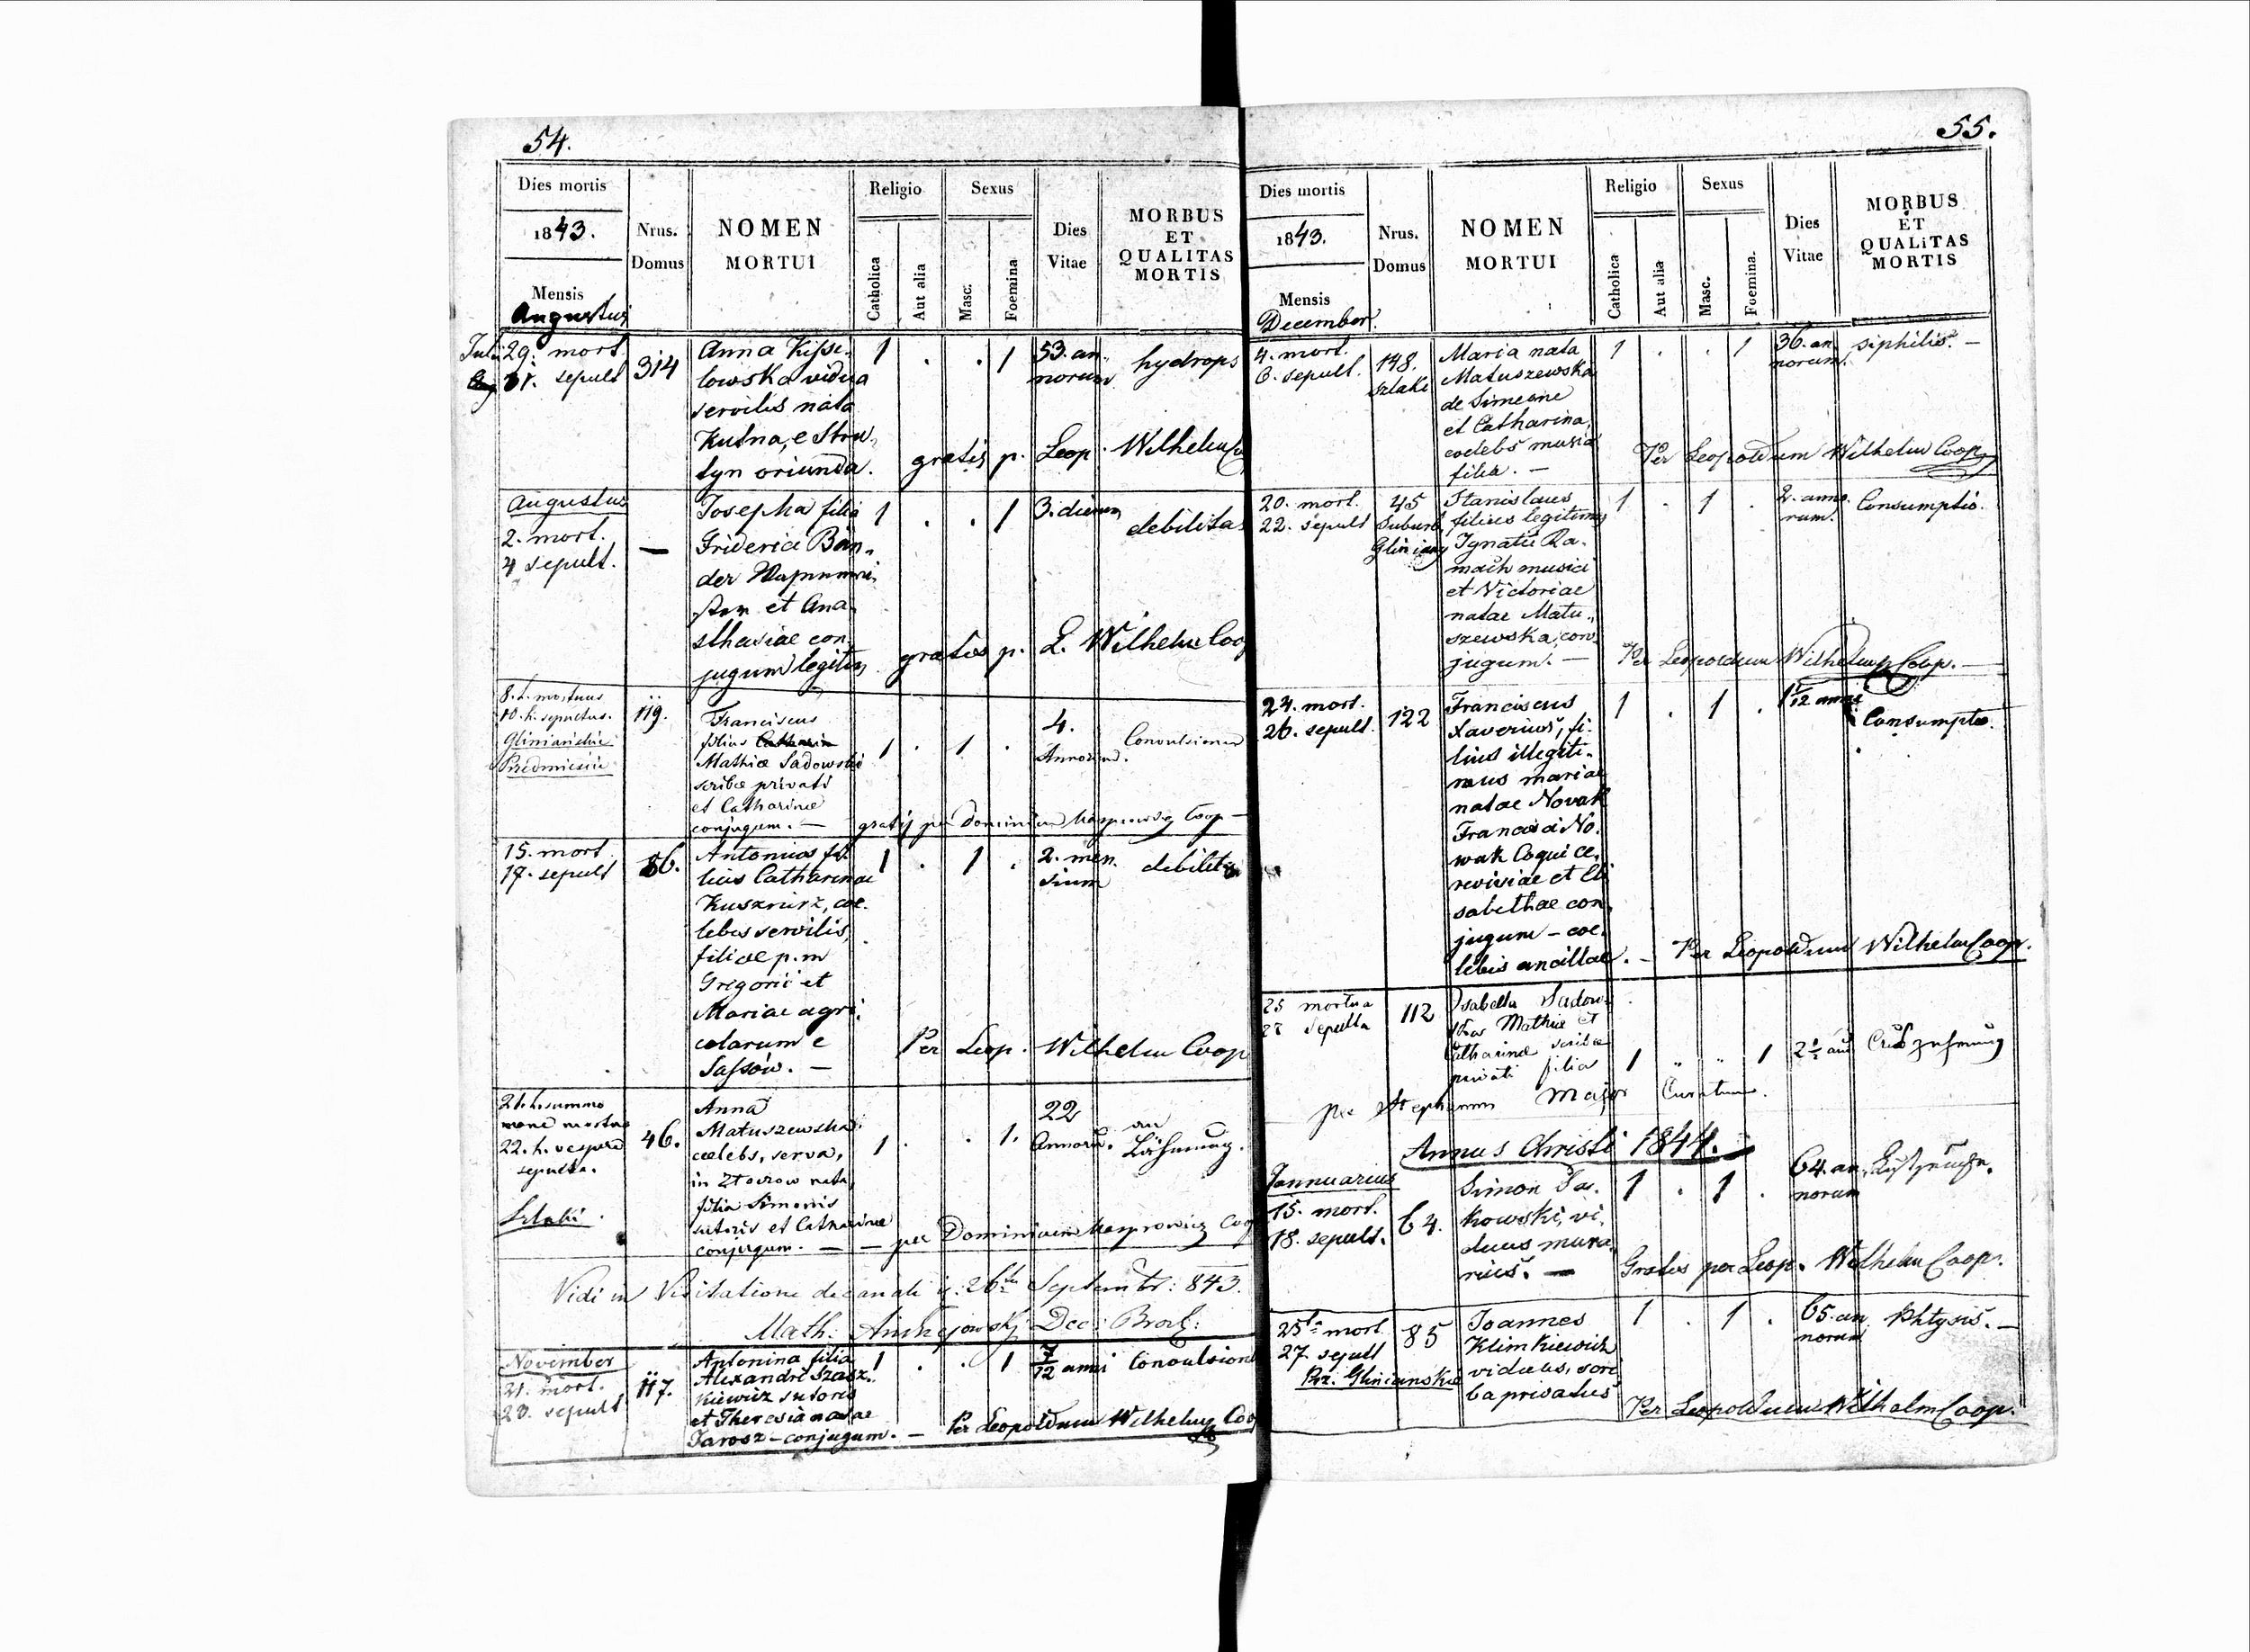 54.
Dies mortis
1843.
Mensis
Augustus
Nrus.
Domus
NOMEN
MORTUI
Religio
Catholica
Aut alia
Sexus
Masc:
Foemina
Dies
Vitae
MORBUS
ET
QUALITAS
MORTIS
Julii 29. mort.
31. sepult
314
Anna Kisse-
lowska vidua
servilis nata
Kutna, e Stru-
tyn oriunda.
1 . . 1
53. an-
norum
hydrops
gratis p. Leop. Wilhelm
Augustus
2. mort.
4 sepult.
—
Josepha filia
Friderici Bän-
der
et Ana-
sthasiae con-
jugum legitim
1 . . 1
3. dierum
debilitas
gratis p. L. Wilhelm Coop
8. h. mortuus
10. h. sepultus.
Gliniańskie
Przedmieście
119.
Franciscus
filius
Mathiae Sadowski
scribae privati
et Catharinae
conjugum. —
1 . 1 .
4.
Annorum.
Convulsiones
gratis per Dominicum Coop —
15. mort.
17. sepult
86.
Antonius fi-
lius Catharinae
Kusznirz, coe-
lebis servilis,
filiae p. m
Gregorii et
Mariae agri-
colarum e
Sassów. —
1 . 1 .
2. men-
sium
debilitas
Per Leop. Wilhelm Coop
21. h. summo
mane mortua
22. h. vespere
sepulta.
Szlaki.
46.
Anna
Matuszewska
caelebs, serva,
in Złoczow nata,
filia Simonis
sutoris et Catharinae
conjugum. —
1 . . 1.
22
Annoru.
an
Lähmung.
— per Dominicum Kasprowicz Coop
Vidi in Visitatione decanali 26ta Septembr: 843.
Math: Dec: Brod:
November
21. mort.
23. sepult
117.
Antonina filia
Alexandri Szasz-
kiewicz sutoris
et Theresia natae
Jarosz – conjugum. —
1 . . 1
7/12 anni
Convulsiones
Per Leopoldum Wilhelm Coop
55.
Dies mortis
1843.
Mensis
December.
Nrus.
Domus
NOMEN
MORTUI
Religio
Catholica
Aut alia
Sexus
Masc.
Foemina.
Dies
Vitae
MORBUS
ET
QUALITAS
MORTIS
4. mort.
6. sepult.
148.
Szlaki
Maria nata
Matuszewska
de Simeone
et Catharina,
coelebs
filia. —
1 . . 1
36. an-
norum.
siphilis. —
Per Leopoldum Wilhelm Coop
20. mort.
22. sepult
45
Suburb.
Gliniany
Stanislaus
filius legitimus
Ignatii Ra-
mach musici
et Victoriae
natae Matu-
szewska, con-
jugum. —
1 . 1 .
2. anno-
rum.
Consumptio.
Per Leopoldum Wilhelm Coop. —
24. mort.
26. sepult.
122
Franciscus
Xaverius, fi-
lius illegiti-
mus mariae
natae Novak
Francisci No-
wak Coqui ce-
revisiae et Eli
sabethae con-
jugum – coe-
lebis ancillae. —
1 . 1 .
Consumptio.
Per Leopoldum Wilhelm Coop.
25 mortua
27 sepulta
112
Isabella Sadow-
ska Mathiae et
Catharinae scribae
privati filia
1 „ „ 1
2 1/2
Auszehrung
per Stephanum Major Curatum.
Annus Christi 1844.
Jannuarius
15. mort.
18. sepult.
64.
Simon Ja-
kowski, vi-
duus mura-
rius. —
1 . 1 .
64. an-
norum
Gratis per Leop. Wilhelm Coop.
25ta mort.
27. sepult
Prz. Glinianskie
85
Joannes
Klimkiewicz
viduus, scri
ba privatus
1 . 1 .
65. an
norum
Phtysis. —
Per Leopoldum Wilhelm Coop.